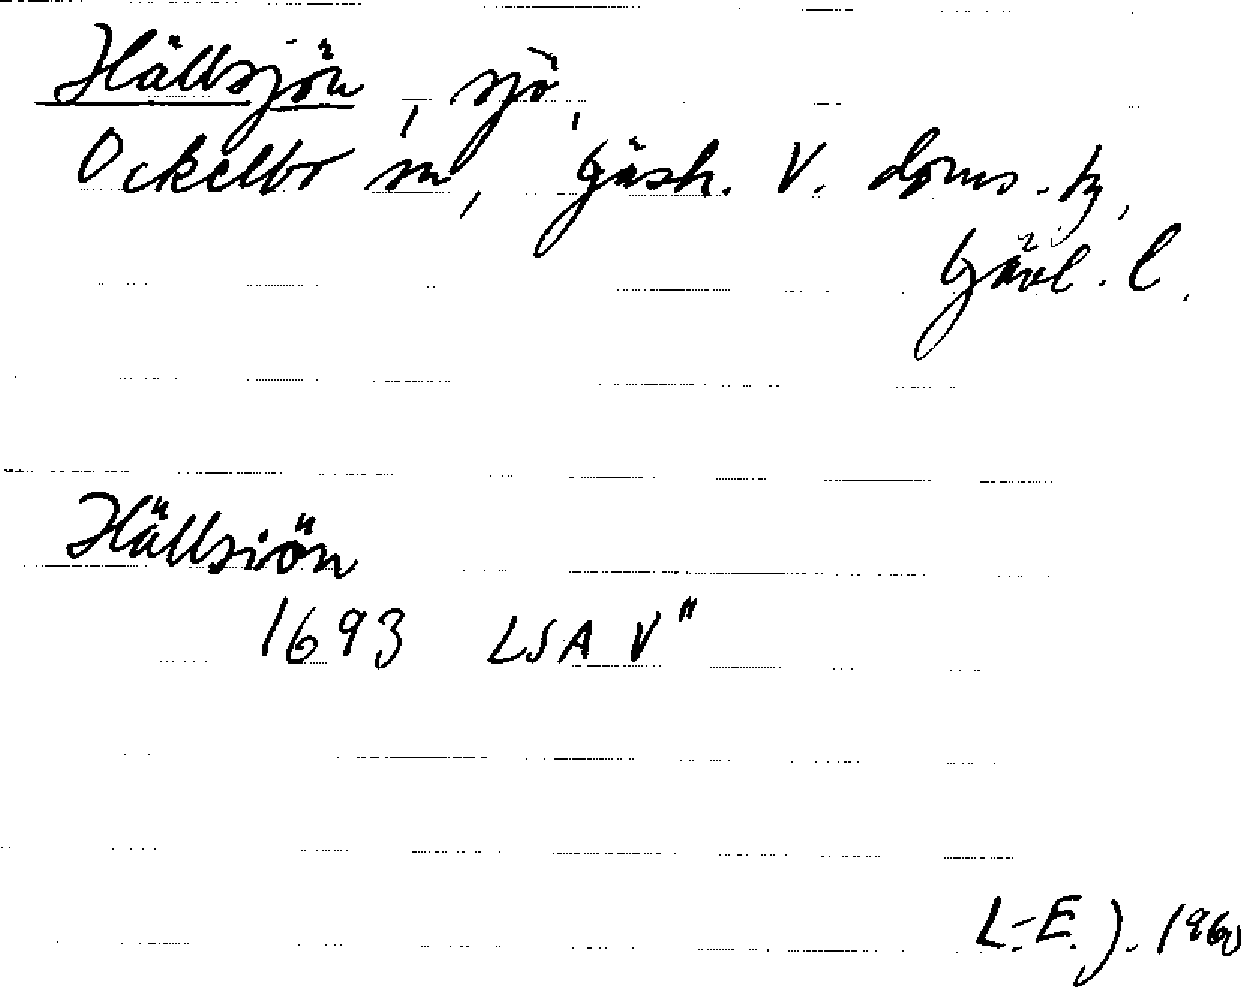 Hällsjön, sjö,
Ockelbo sn, Gästr. V. doms. tg,
Gävl. l.
Hällsiön
1693 LSA V"
L.-E. J. 1960